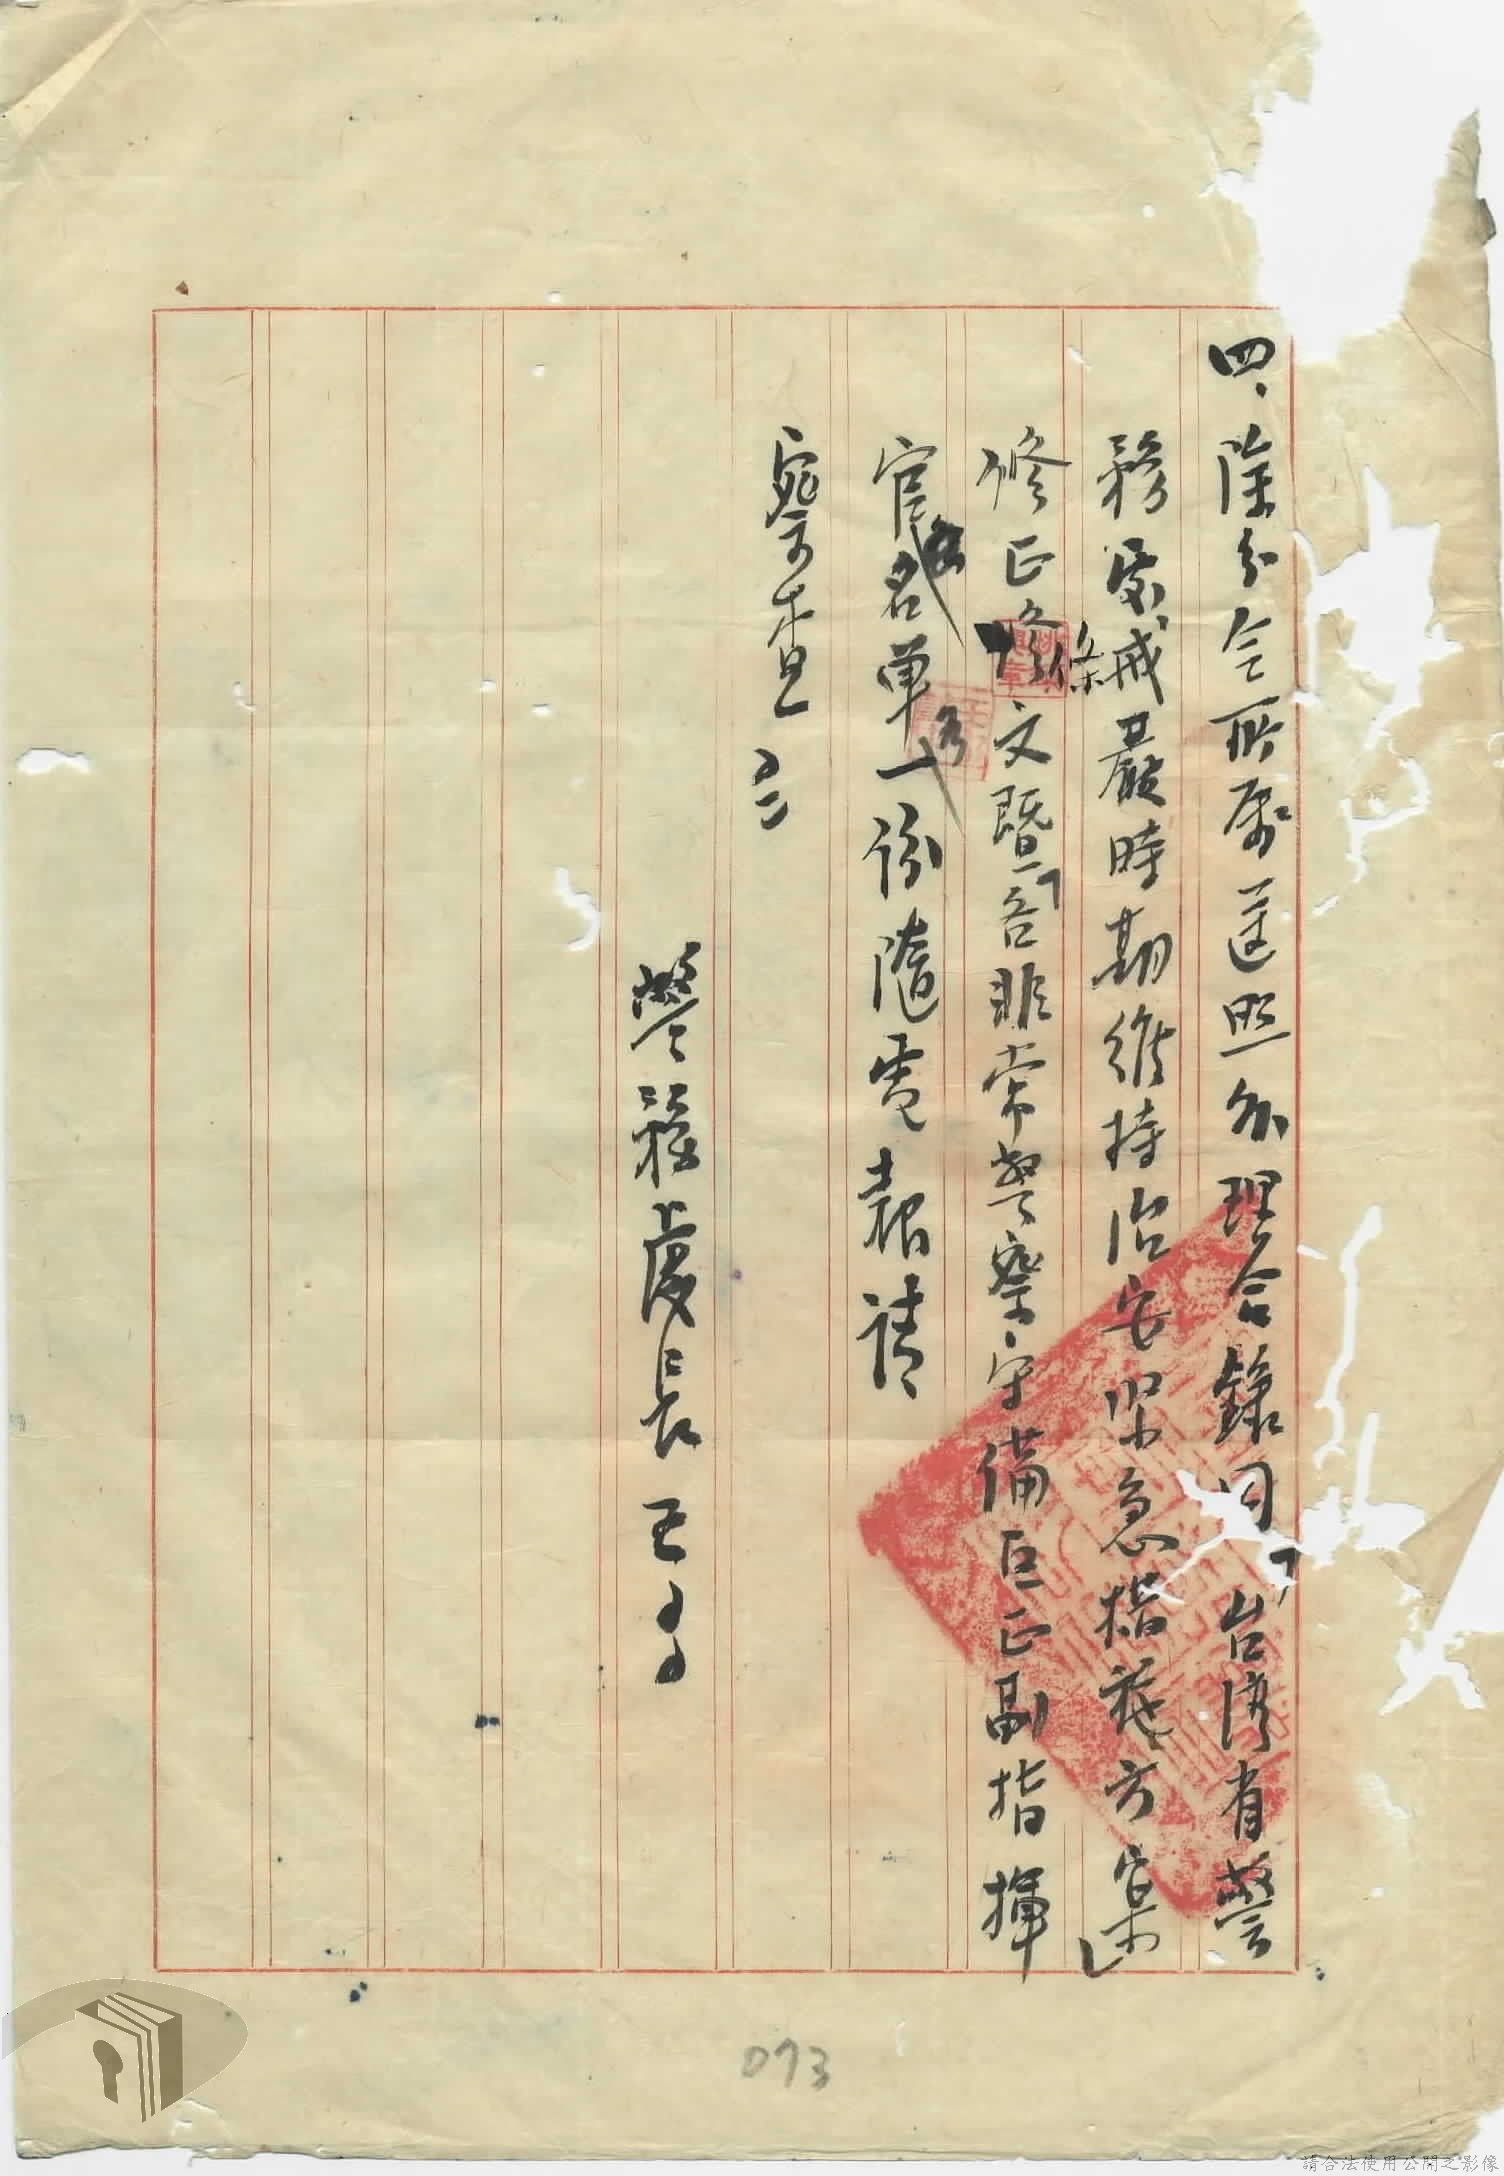 四、除分令所屬遵照外理合錄同「台湾省警
務處戒嚴時期維持治安緊急措施方案」
修正條文暨「吾非常警察守備區正副指揮
官名單一份隨電報請
察查
警務處長王
073
請合法使用公開之影像